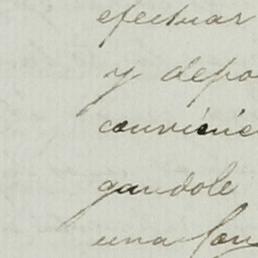 efectuar
y depo
convinie
gandole
una